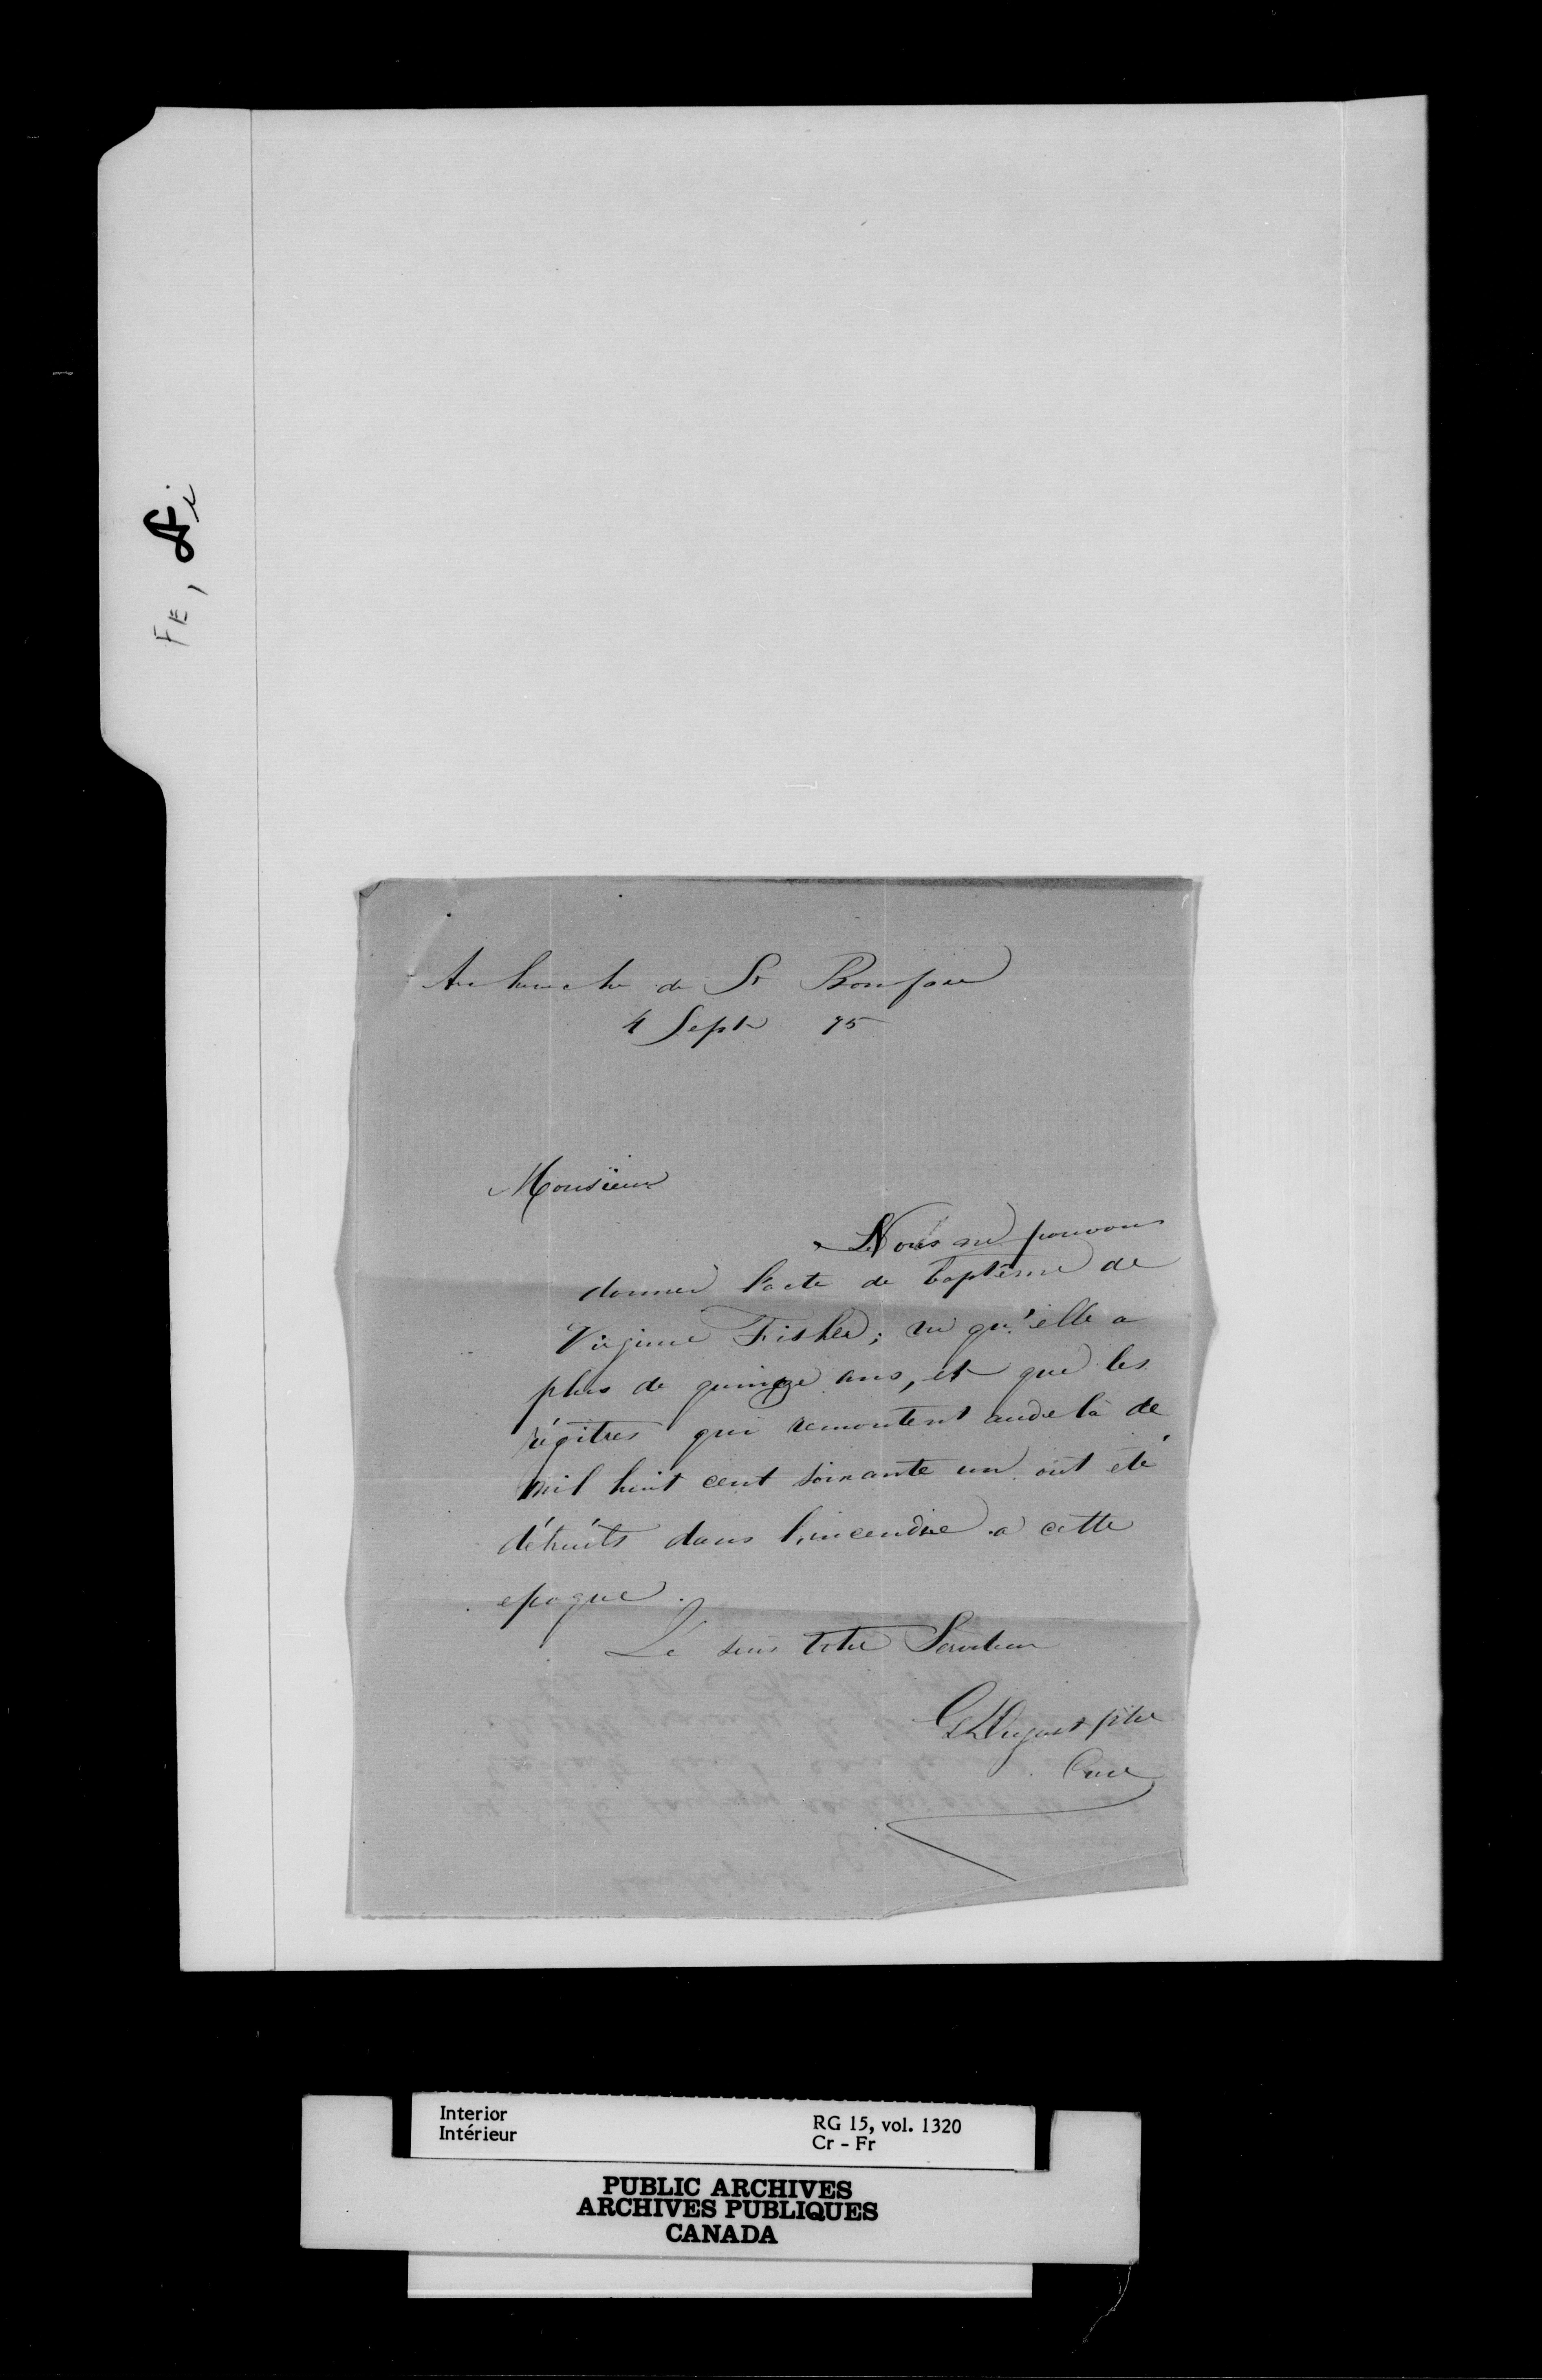 FE, Fi
Archeveche de St Boniface
4 Septr 75
Monsieur
Nous ne pouvons
donner l'acte de baptême de
Virginie Fisher; vu qu'elle a
plus de quinze ans, et que les
régitres qui remontent audela de
mil huit cent soixante un ont été
détruits dans l'incendie a cette
epoque.
Le suis Votre Serviteur
G Dugast ptre
Curé
Interior
Intérieur
RG 15, vol. 1320
Cr - Fr
PUBLIC ARCHIVES
ARCHIVES PUBLIQUES
CANADA